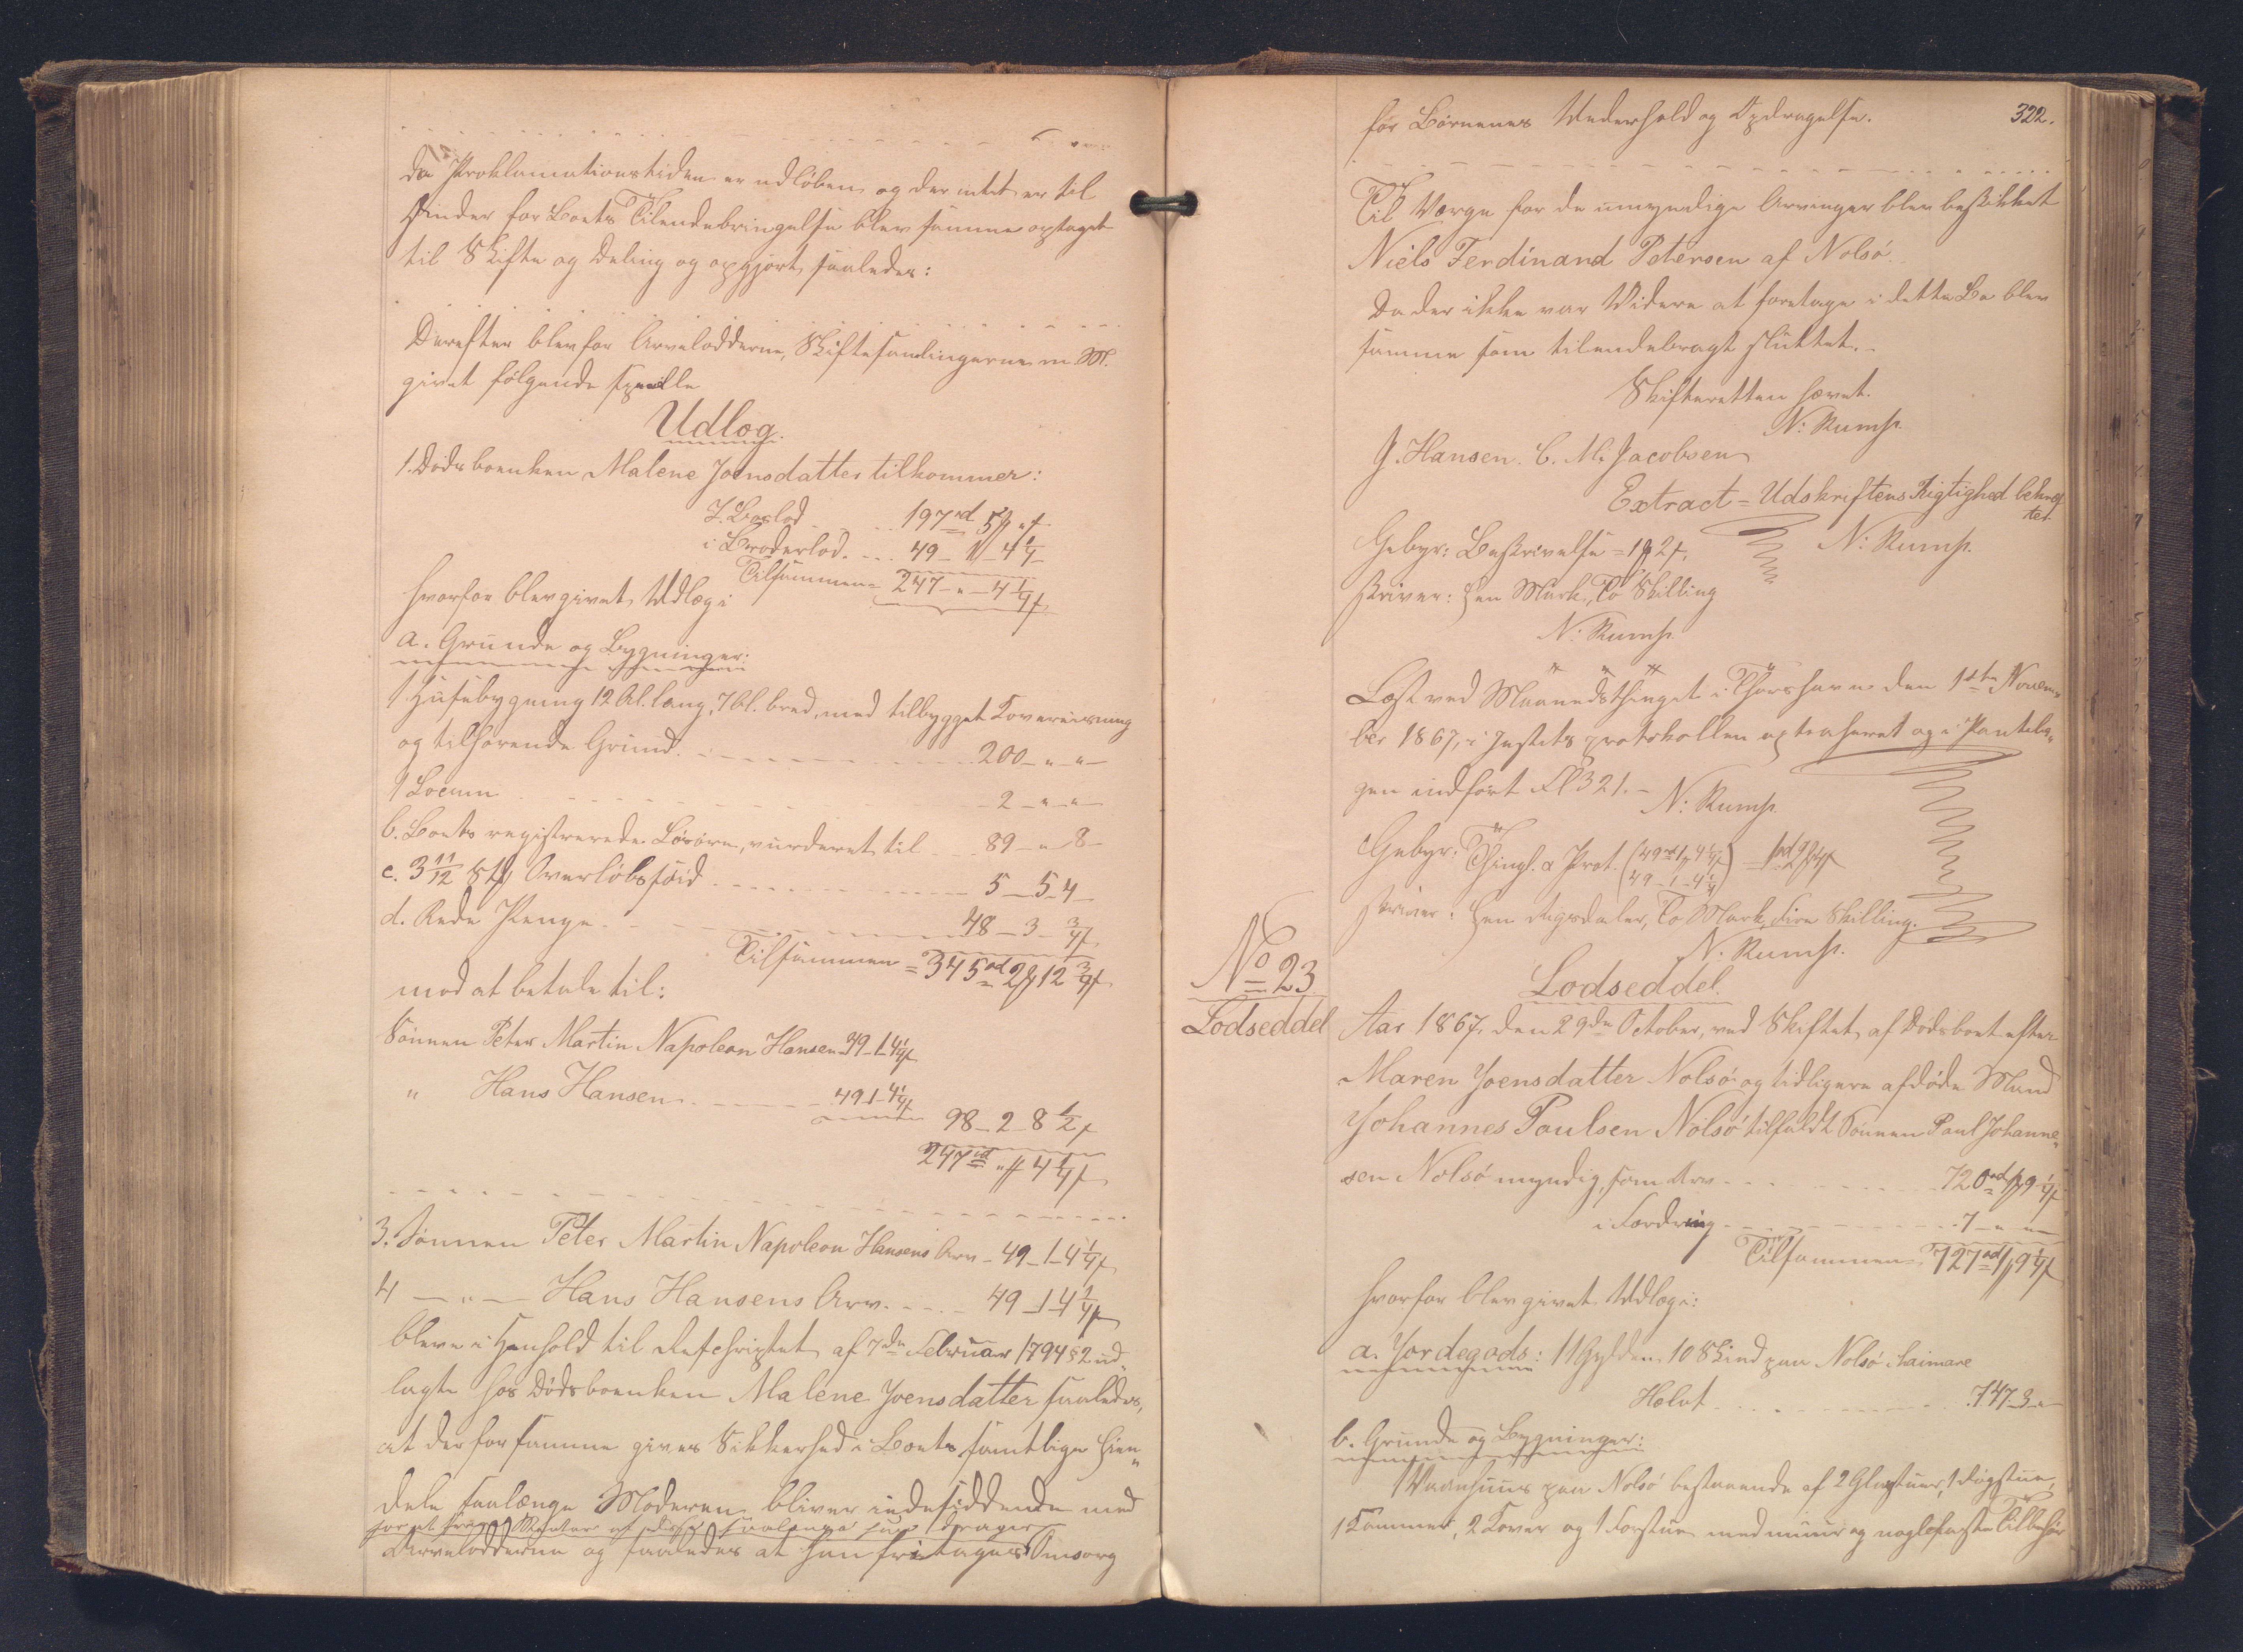 Da Proklamationstiden er udløben og der intet er til
Hinder for Boets Tilendebringelse blev samme optaget
til Skifte og Deling og opgjort saaledes:
Derefter blev for Arvelodderne, Skiftesamlingerne m. M.
givet følgende specielle
Udlog.
1. Dødsboenken Malene Joensdatter tilkommer:
I. Boslod 197 rd 5 " f
i Broderlod 49 - 1 - 4 1/4
Tilsammen = 247 - " - 4 1/4 f
hvorfor blev givet Udlæg i
a. Grunde og Bygninger:
1 Huusbygning 12 Al. lang, 7 Al. bred, med tilbygget
og tilhørende Grund 200 - " - " -
1 Locum 2 - " - " -
b. Boets registrerede Løsøre, vurderet til 89 - " - 8 -
c. 3 11/12 Overløbsjord 5 - 5 - 4 -
d. Rede Penge 48 - 3 - 3/4 f
Tilsammen = 345 rd 2 12 3/4 f
mod at betale til:
Sønnen Peter Martin Napoleon Hansen 49 - 1 - 4 1/4 f
" Hans Hansen 49 - 1 - 4 1/4 f
98 - 2 - 8 1/2 f
247 rd " 4 1/4 f
3. Sønnen Peter Martin Napoleon Hansens Arv - 49 - 1 - 4 1/4 f
4 — " — Hans Hansens Arv 49 - 1 - 4 1/4 f
bleve i Henhold til Refskriptet af 7de Februar 1794 § 2 ud„
lagte hos Dødsboenken Malene Joensdatter saaledes,
at der for samme gives Sikkerhed i Boets samtlige Eien„
dele saalænge Moderen bliver indesiddende med
Arvelodderne og saaledes at hun fritages Omsorg
322.
for Børnenes Underhold og Opdragelse.
Til Værge for de umyndige Arvinger blev beskikket
Niels Ferdinand Petersen af Nolsø.
Da der ikke var Videre at foretage i dette Bo blev
samme som tilendebragt sluttet.
Skifteretten hævet.
N: Rump.
J. Hansen. C. M. Jacobsen
Extract = Udskriftens Rigtighed bekræf
tet
N: Rump.
Gebyr: Beskrivelse = 1 2 f.
skriver: Een Mark, To Skilling
N: Rump.
Læst ved Maanedsthinget i Thorshavn den 1ste Novem„
ber 1867, i Justitsprotokollen extraheret og i Pantebo„
gen indført Fl 321. -
N: Rump.
Gebyr: Thingl. & Prot. (49 rd 1 4 1/4 f
49 - 1 - 4 1/4) 1 rd 2 4 f
skriver: Een Rigsdaler, To Mark, Fire Skilling.
N. Rump.
No 23
Lodseddel
Lodseddel.
Aar 1867, den 29de October, ved Skiftet af Dødsboet efter
Maren Joensdatter Nolsø og tidligere afdøde Mand
Johannes Poulsen Nolsø tilfaldt Sønnen Paul Johanne„
sen Nolsø myndig, som Arv 720 rd 1 9 1/4 f
i Fordring 7 - " - " -
Tilsammen 727 rd 1 9 1/4 f
hvorfor blev givet Udlæg i:
a. Jordegods: 11 Gylden 10 Skind paa Nolsø
747 - 3 - " -
b. Grunde og Bygninger:
1 Vaanhuus paa Nolsø bestaaende af 2 Glasstuer, 1 Røgstue,
1 Kammer, 2 Lover og 1 Forstue med muur og naglefaste Tilbehør